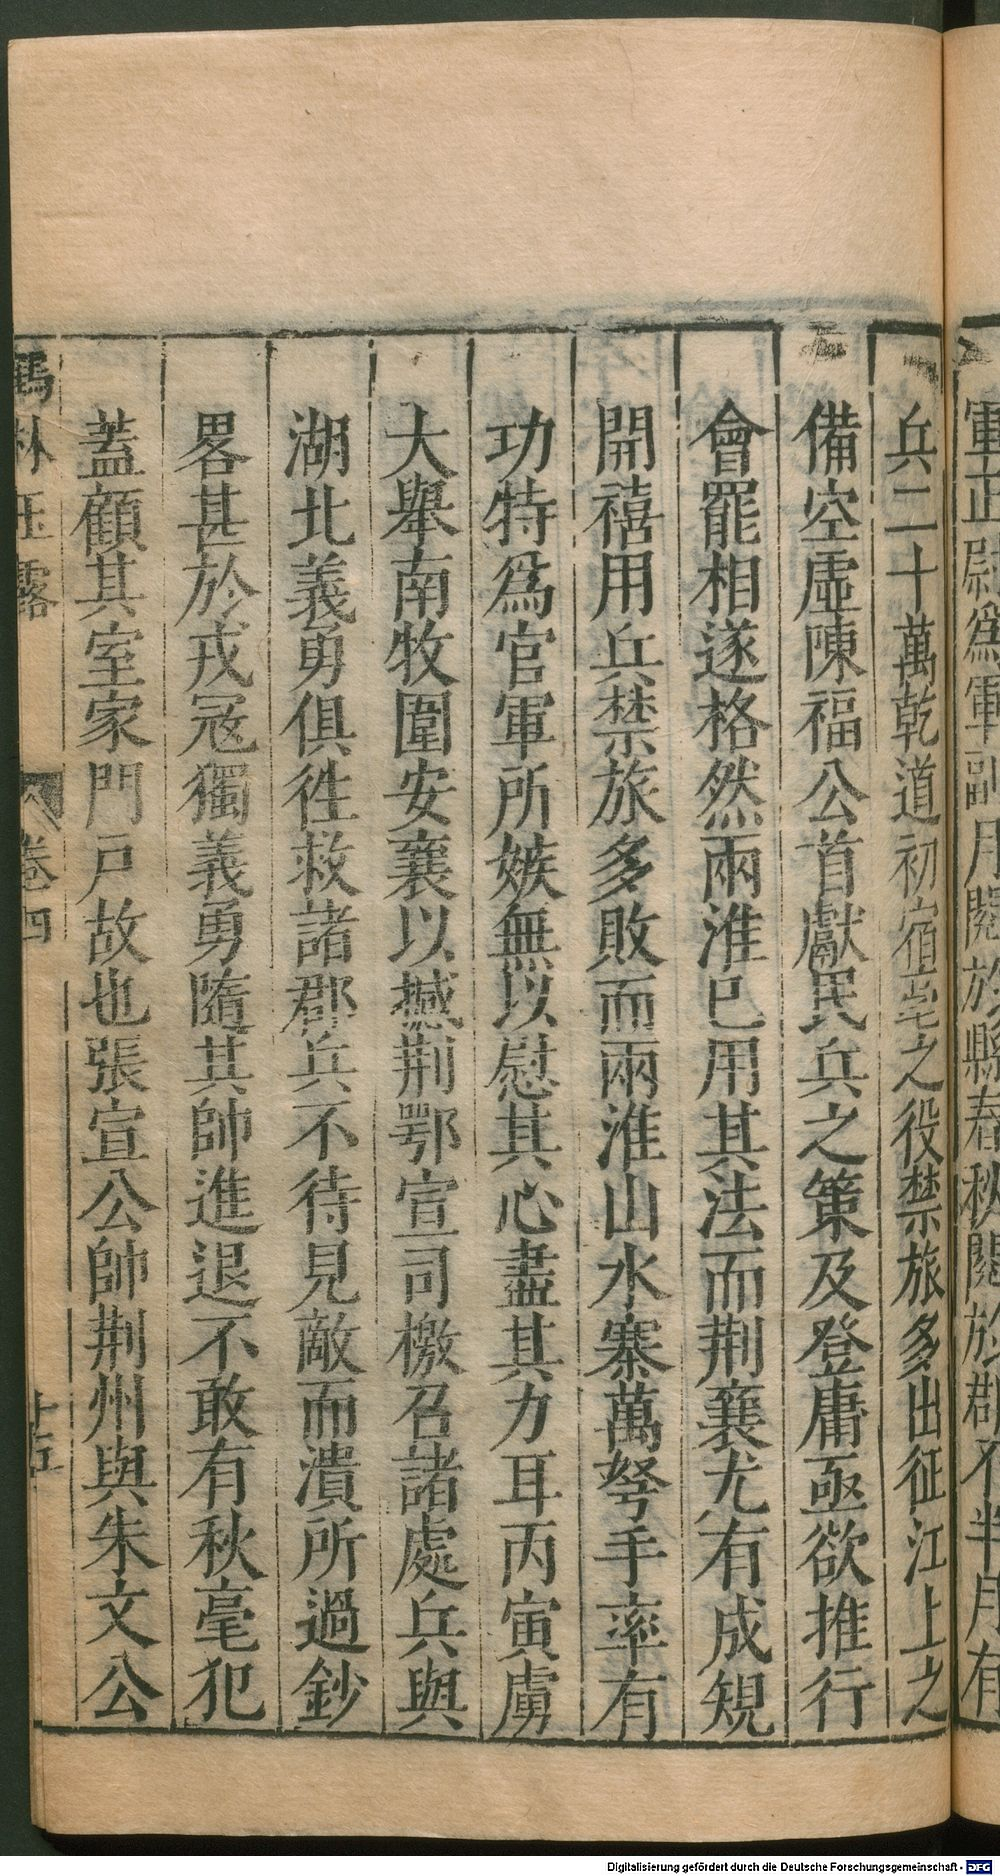 軍正尉爲軍副月閱於縣春秋閱於郡不半月有
兵二十萬乾道初宿亳之役禁旅多出征江上之
備空虛陳福公首獻民兵之策及登庸亟欲推行
會罷相遂格然兩淮已用其法而荆襄尤有成規
開禧用兵禁旅多敗而兩淮山水寨萬弩手率有
功特爲官軍所嫉無以慰其心盡其力耳丙寅虜
大舉南牧圍安襄以撼荆鄂宣司檄召諸處兵與
湖北義勇俱徃救諸郡兵不待見敵而潰所過鈔
畧甚於戎冦獨義勇隨其帥進退不敢有秋毫犯
蓋顧其室家門戸故也張宣公帥荆州與朱文公
鶴林玉露
卷四
十五
Digitalisierung gefördert durch die Deutsche Forschungsgemeinschaft - DFG